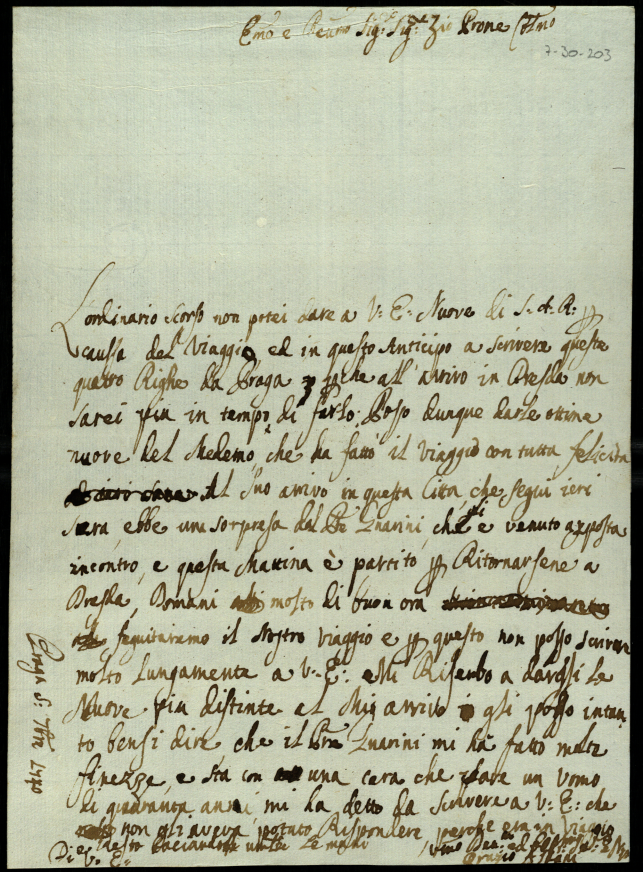 Emo e Reumo Sig: Sig: Zio Prone Cmo
7-30-203
L'ordinario scorso non potei dare a V: E: Nuove di S: A: R: p
causa del Viaggio, ed in questo Anticipo a scrivere queste
quatro Righe da Praga, all' arrivo in Dresda non
sarei piu in tempo di farlo. Posso dunque darle ottime
nuove del Medemo che ha fatto il viaggio con tutta felicità
Al suo arrivo in questa Citta che segui ieri
sera, ebbe una sorpresa del Pre Guarini, che gli e venuto apposta
incontro, e questa Mattina è partito p Ritornarsene a
Dresda, Domani molto di buon ora
seguitaremo il Nostro viaggio e p questo non posso scrivere
molto lungamente a V: E: e Mi Riserbo a darvi le
Nuove piu distinte al Mio arrivo gli posso intan
to bensi dire che il Pre Guarini mi ha fatto molte
finezze, e sta con una cera che pare un Uomo
di quaranta anni, mi ha detto da scrivere a V: E: che
non gli aveva potuto Rispondere perche era in Viaggio
e resto baciandole le mani
Di V: E:
Praga 5: 1740